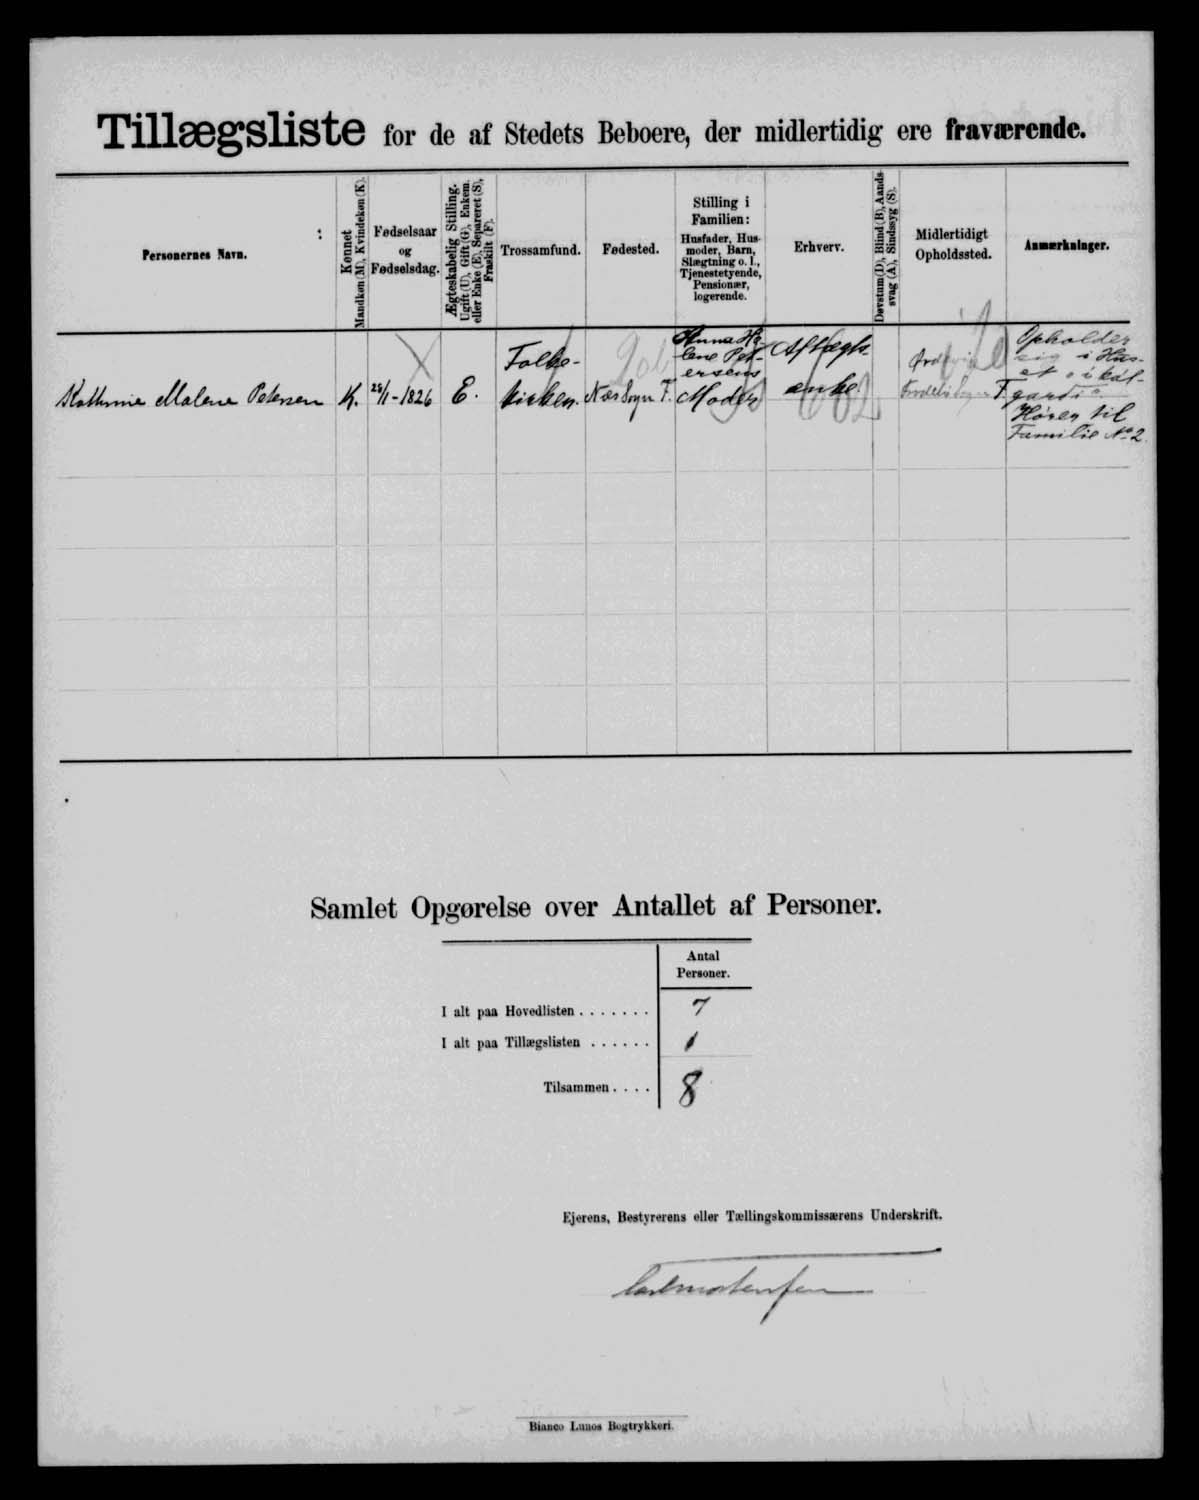 Tillægsliste for de af Stedets Beboere, der midlertidig ere fraværende.
Personernes Navn. :
Kønnet
Mandkøn (M), Kvindekøn (K).
Fødselsaar
og
Fødselsdag.
Ægteskabelig Stilling.
Ugift (U), Gift (G), Enkem.
eller Enke (E), Separeret (S),
Fraskilt (F).
Trossamfund.
Fødested.
Stilling i
Familien:
Husfader, Hus-
moder, Barn,
Slægtning o. l.,
Tjenestetyende,
Pensionær,
logerende.
Erhverv.
Døvstum (D), Blind (B), Aands-
svag (A), Sindssyg (S).
Midlertidigt
Opholdssted.
Anmærkninger.
Kathrine Malene Petersen
K.
1826
E.
Folke-
kirken.
Næs Sogn F.
Anna He-
lene Pet-
ersens
Moder
Aftægts-
enke
F.
Opholder
sig i Hus-
et
Hører til
Familie No 2.
Samlet Opgørelse over Antallet af Personer.
Antal
Personer.
I alt paa Hovedlisten . . . . . . . 7
I alt paa Tillægslisten . . . . . . 1
Tilsammen . . . . 8
Ejerens, Bestyrerens eller Tællingskommissærens Underskrift.
Bianco Lunos Bogtrykkeri.